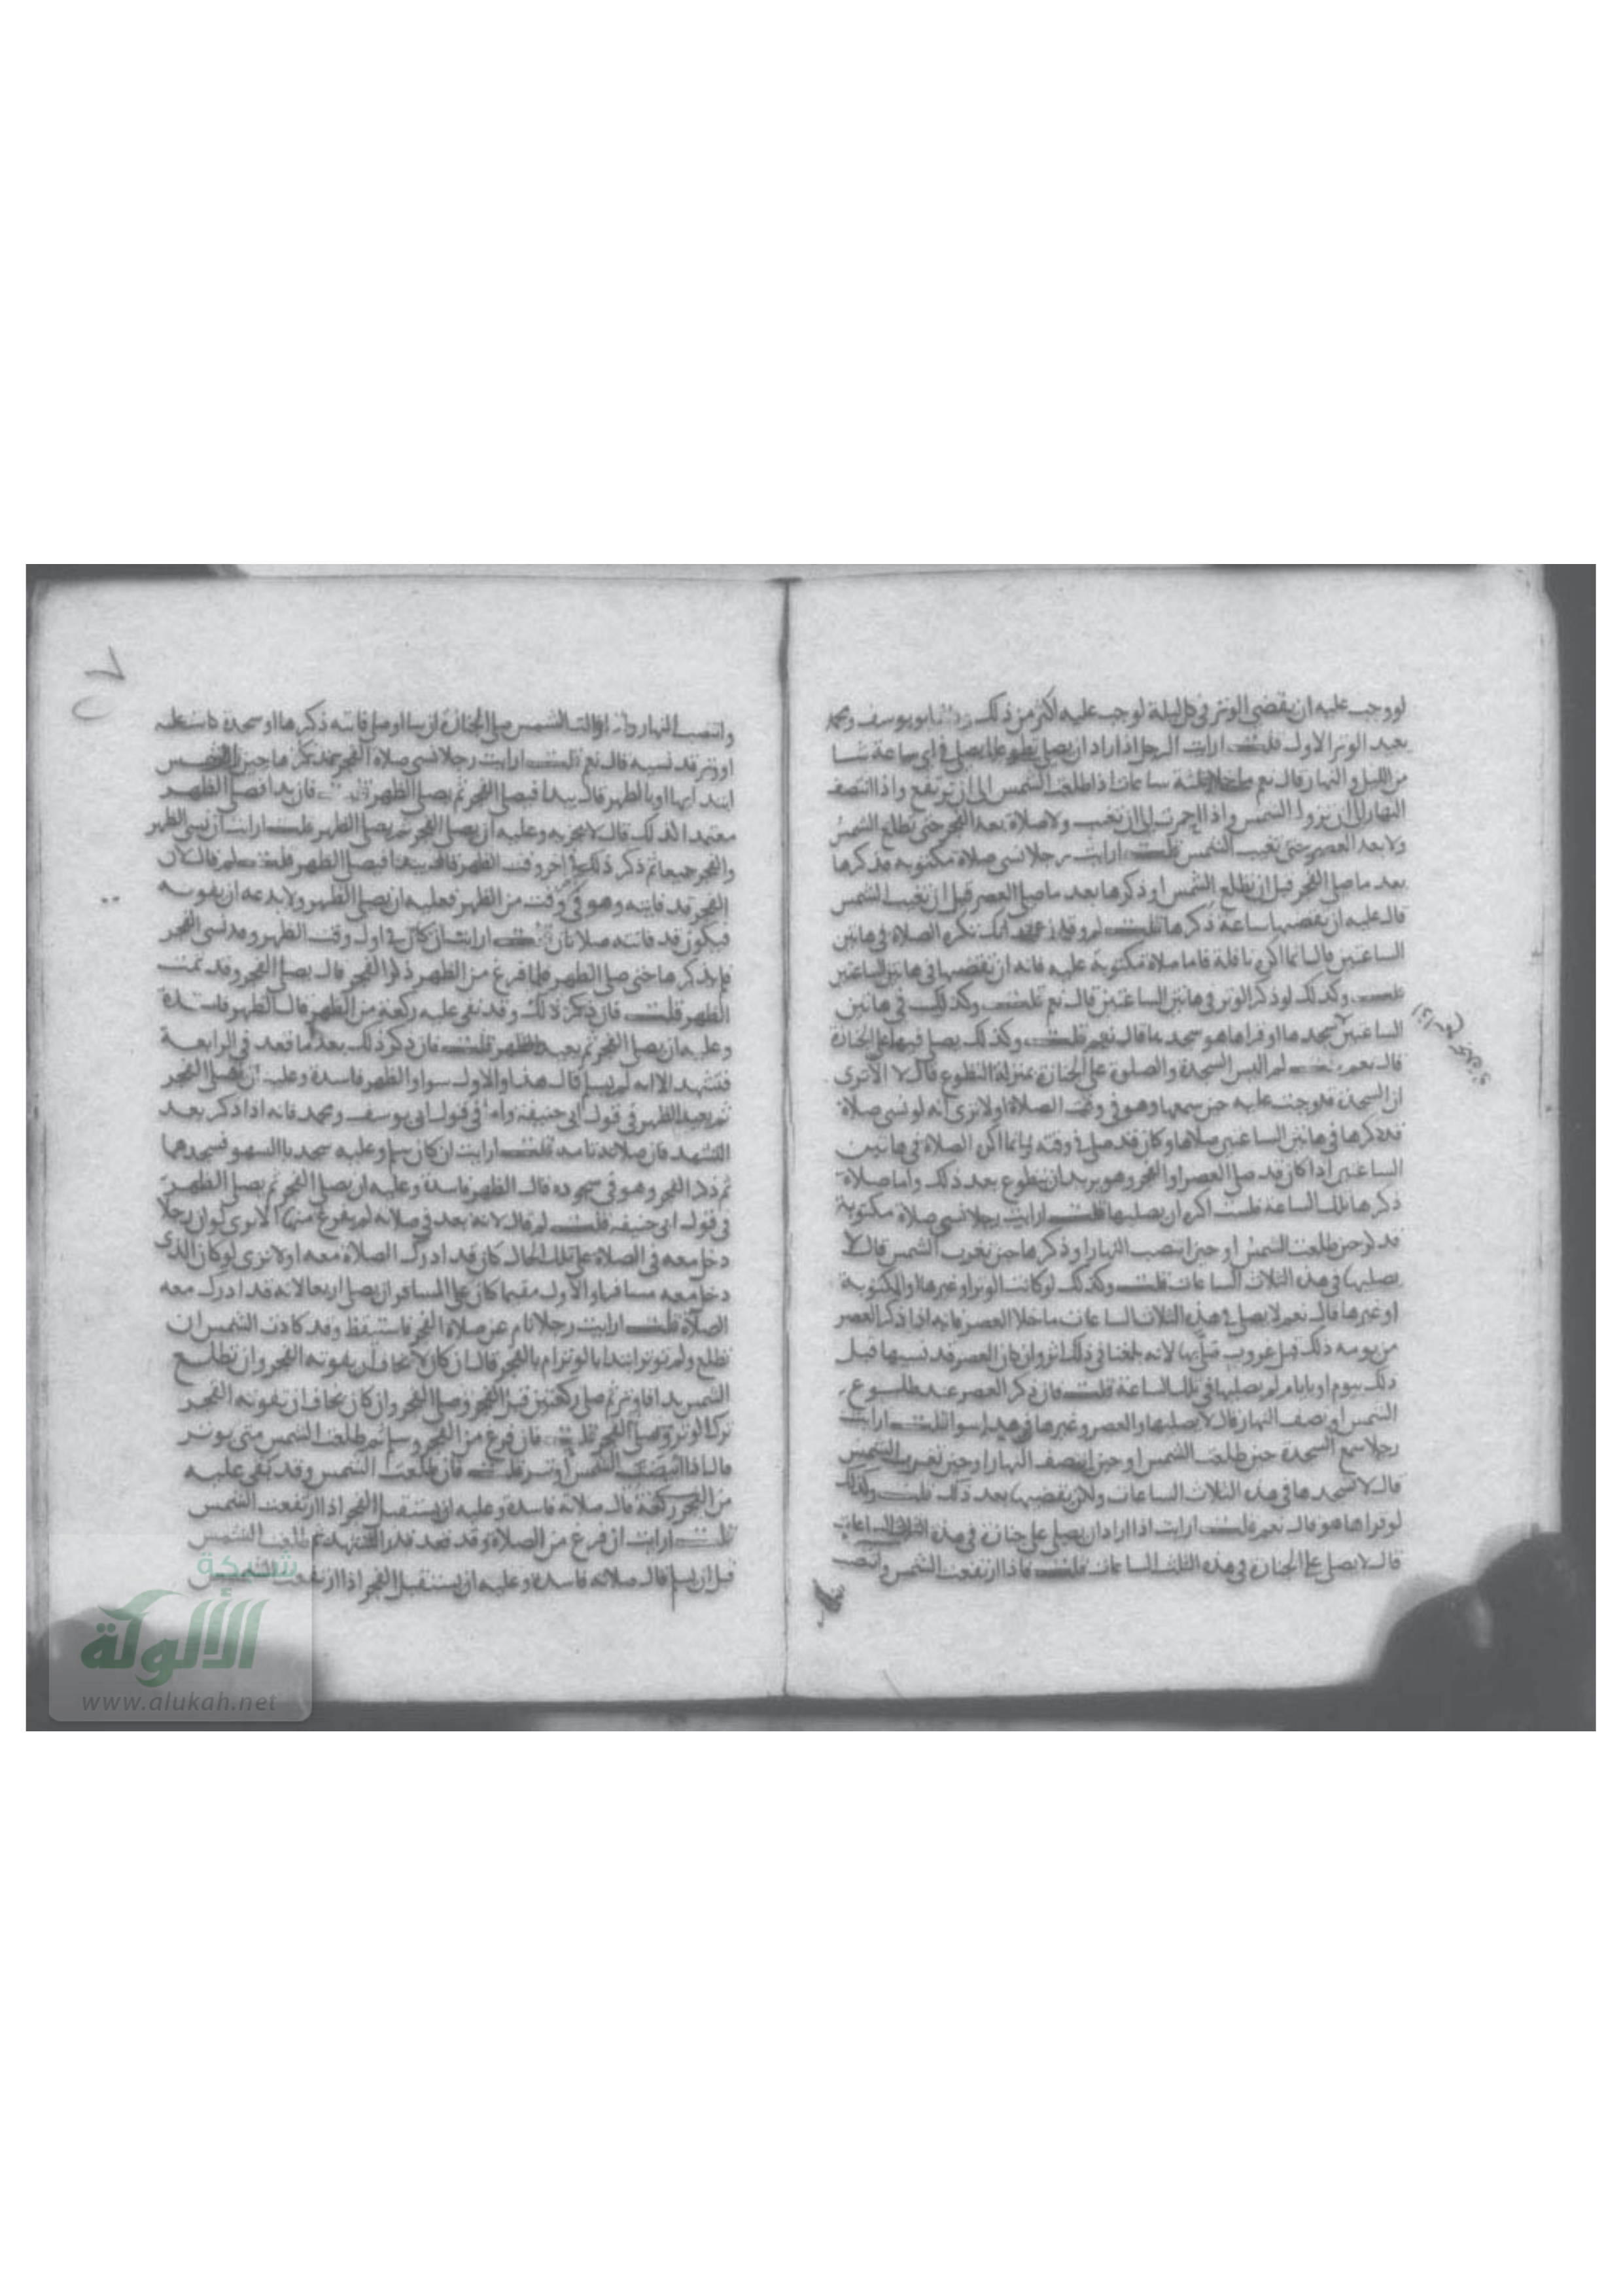 لو وجب عليه ان يقضي الوتر في كل ليلة لوجب عليه اكثر من ذلك وقال ابو يوسف ومحمد
يعيد الوتر الاول قلت ارايت الرجل اذا اراد ان يصلي تطوعا ايصلي في اي ساعة شا
من الليل والنهار قال نعم ما خلا ثلثة ساعات اذا طلعت الشمس الى ان ترتفع واذا انتصف
النهار الى ان تزول الشمس واذا احمرت الى ان تغيب ولا صلاة بعد الفجر حتى تطلع الشمس
ولا بعد العصر حتى تغيب الشمس قلت ارايت رجلا نسي صلاة مكتوبة فذكرها
بعد ما صلى الفجر قبل ان تطلع الشمس او ذكرها بعد ما صلى العصر قبل ان تغيب الشمس
قال عليه ان يقضيها ساعة ذكرها قلت لم وقد زعمت انك تكره الصلاة في هاتين
الساعتين قال انما اكره نافلة فاما صلاة مكتوبة عليه فانه ان يقضيها في هاتين الساعتين
قلت وكذلك لو ذكر الوتر في هاتين الساعتين قال نعم قلت وكذلك في هاتين
الساعتين سجدها او قراها هو سجدها قال نعم قلت وكذلك يصلي فيها على الجنازة
قال نعم قلت لم اليس السجدة والصلوة على الجنازة بمنزلة التطوع قال لا الا ترى
ان السجدة قد وجبت عليه حين سمعها وهو في وقت الصلاة او لا ترى انه لو نسي صلاة
فذكرها في هاتين الساعتين صلاها وكان قد صلى في وقته انما اكره الصلاة في هاتين
الساعتين اذا كان قد صلى العصر او الفجر وهو يريد ان يتطوع بعد ذلك واما صلاة
ذكرها تلك الساعة فلست اكره ان يصليها قلت ارايت رجلا نسي صلاة مكتوبة
فذكر حين طلعت الشمس او حين انتصف النهار او ذكرها حين تغرب الشمس قال لا
يصليها في هذه الثلاث الساعات قلت وكذلك لو كانت الوتر او غيرها والمكتوبة
او غيرها قال نعم لا يصلي في هذه الثلاث الساعات ما خلا العصر فانه اذا ذكر العصر
من يومه ذلك قبل غروب صلاها لانه بلغنا في ذلك اثر وان كان العصر قد نسيها قبل
ذلك بيوم او بايام لم يصليها في تلك الساعة قلت فان ذكر العصر عند طلوع
الشمس او نصف النهار قال لا يصليها والعصر وغيرها في هذا سوا قلت ارايت
رجلا سمع السجدة حين طلعت الشمس او حين انتصف النهار او حين تغرب الشمس
قال لا يسجدها في هذه الثلاث الساعات ولكن يقضيها بعد ذلك قلت وكذلك
لو قراها هو قال نعم قلت ارايت اذا اراد ان يصلي على جنازة في هذه الثلاث الساعات
قال لا يصلي على الجنازة في هذه الثلث الساعات قلت فاذا ارتفعت الشمس وانتصب
وانتصب النهار وزالت الشمس صلى الجنازة ان شا او صلى فائتة ذكرها او سجدة كانت عليه
او وتر قد نسيه قال نعم قلت ارايت رجلا نسي صلاة الفجر فذكرها حين زالت الشمس
ابتدا بها او بالظهر قال يبدا فيصلي الفجر ثم يصلي الظهر قلت فان بدا فصلى الظهر
متعمدا لذلك قال لا يجزيه وعليه ان يصلي الفجر ثم يصلي الظهر قلت ارايت ان نسي الظهر
والفجر جميعا ثم ذكر ذلك في اخر وقت الظهر قال يبدا فيصلي الظهر قلت لم قال لان
الفجر قد فاتته وهو في وقت من الظهر فعليه ان يصلي الظهر ولا يدعه ان يفوته
فيكون قد فاتته صلاتان قلت ارايت ان كان في اول وقت الظهر وقد نسي الفجر
فلم يذكرها حتى صلى الظهر فلما فرغ من الظهر ذكر الفجر قال يصلي الفجر وقد تمت
الظهر قلت فان ذكر ذلك وقد بقي عليه ركعة من الظهر قال الظهر فاسدة
وعليه ان يصلي الفجر ثم يعيد الظهر قلت فان ذكر ذلك بعد ما قعد في الرابعة
فتشهد الا انه لم يسلم قال هذا والاول سوا والظهر فاسدة وعليه ان يصلي الفجر
ثم يعيد الظهر في قول ابي حنيفة واما في قول ابي يوسف ومحمد فانه اذا ذكر بعد
التشهد فان صلاته تامة قلت ارايت ان كان سلم وعليه سجدتا السهو فسجدهما
ثم ذكر الفجر وهو في سجوده قال الظهر فاسدة وعليه ان يصلي الفجر ثم يصلي الظهر
في قول ابي حنيفة قلت لم قال لانه بعد في صلاته لم يفرغ منها الا ترى لو ان رجلا
دخل معه في الصلاة على تلك الحال كان قد ادرك الصلاة معه او لا ترى لو كان الذي
دخل معه مسافرا والاول مقيما كان على المسافر ان يصلي اربعا لانه قد ادرك معه
الصلاة قلت ارايت رجلا نام عن صلاة الفجر فاستيقظ وقد كادت الشمس ان
تطلع ولم يوتر ابتدا بالوتر ام بالفجر قال ان كان لا يخاف ان يفوته الفجر وان تطلع
الشمس بدا فاوتر ثم صلى ركعتين قبل الفجر وصلى الفجر وان كان يخاف ان تفوته الفجر
ترك الوتر وصلى الفجر قلت فان فرغ من الفجر وسلم ثم طلعت الشمس متى يوتر
قال اذا ابيضت الشمس اوتر قلت فان طلعت الشمس وقد بقي عليه
من الفجر ركعة قال صلاته فاسدة وعليه ان يستقبل الفجر اذا ارتفعت الشمس
قلت ارايت ان فرغ من الصلاة وقد قعد قدر التشهد ثم طلعت الشمس
قبل ان يسلم قال صلاته فاسدة وعليه ان يستقبل الفجر اذا ارتفعت الشمس
شبكة
الألوكة
www.alukah.net